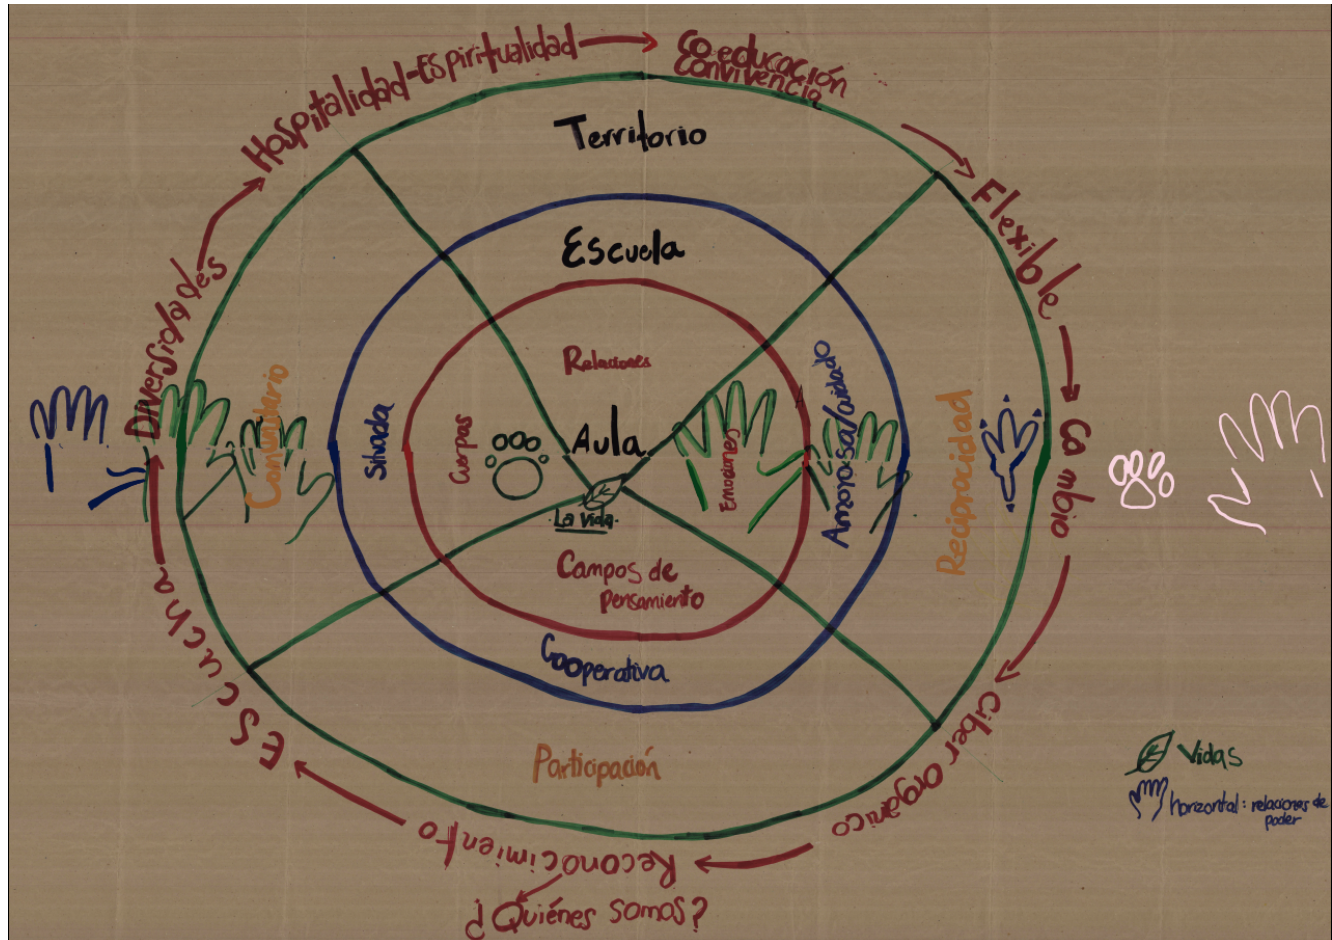 Hospitalidad-Espiritualidad
Co educación
Convivencia
Flexible
Cambio
Ciber organico
Reconocimiento
¿Quiénes somos?
Escucha
Diversidades
Territorio
Escuela
Relaciones
Aula
La vida
Cuerpas
Emociones
Campos de
pensamiento
Situada
Cooperativa
Comunitario
Reciprocidad
Participación
Vidas
horizontal: relaciones de
poder